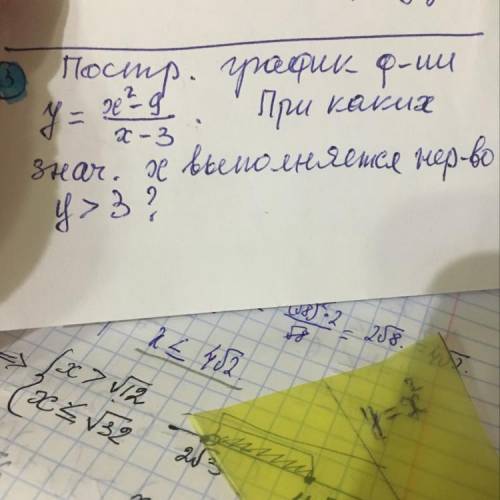 3 Постр. график ф-ии
y = x² - 9 / x - 3 . При каких
знач. x выполняется нер-во
y > 3 ?
(√8)² · 2 / √8 = 2√8.
x ≤ 4√2
⇒ { x > √12
x ≤ √32
2√3